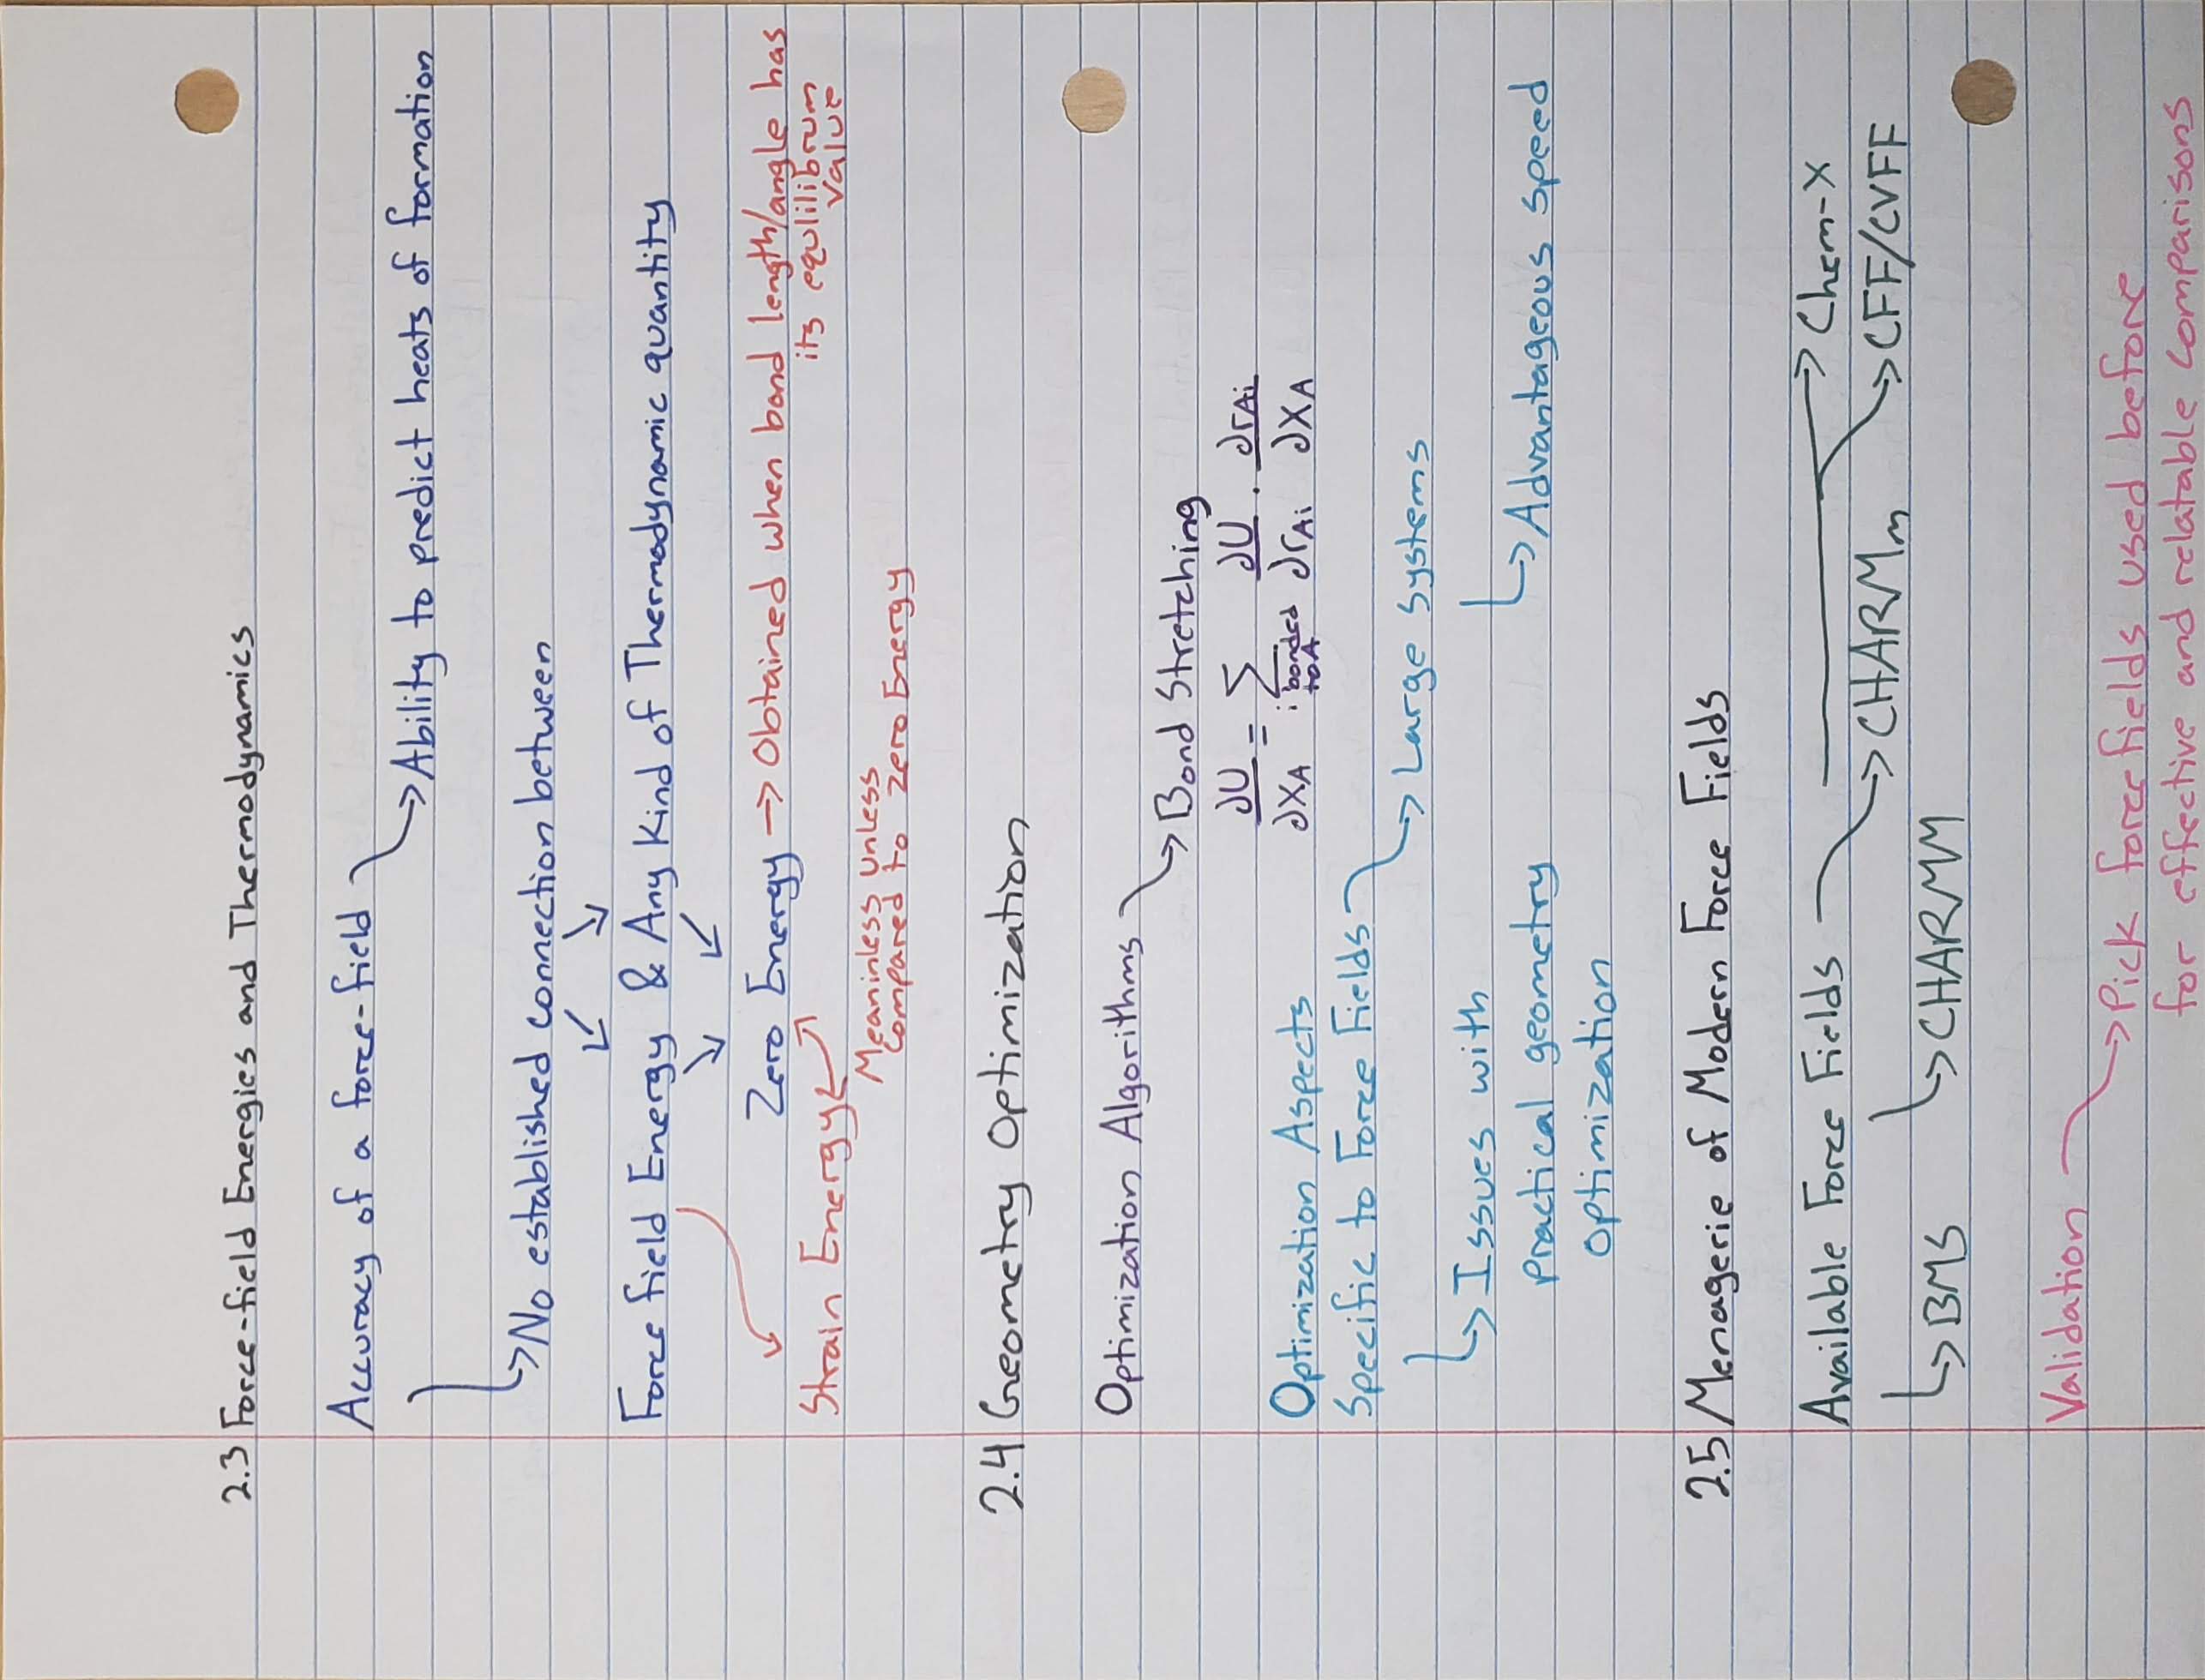 2.3 Force-field Energies and Thermodynamics
Accuracy of a force-field
→ Ability to predict heats of formation
→ No established connection between
↙ ↘
Force field Energy & Any Kind of Thermodynamic quantity
↘ ↙
Zero Energy → Obtained when bond length/angle has
its equlilibrum
value
Strain Energy
Meaninless unless
compared to zero Energy
2.4 Geometry Optimization
Optimization Algorithms
→ Bond Stretching
∂U/∂XA = Σ i bonded to A ∂U/∂rAi · ∂rAi/∂XA
Optimization Aspects
Specific to Force Fields
→ Large systems
→ Issues with
practical geometry
optimization
→ Advantageous speed
2.5 Menagerie of Modern Force Fields
Available Force Fields
→ Chem-X
→ CHARMm
→ CFF/CVFF
→ BMS
→ CHARMM
Validation
→ Pick force fields used before
for effective and relatable comparisons